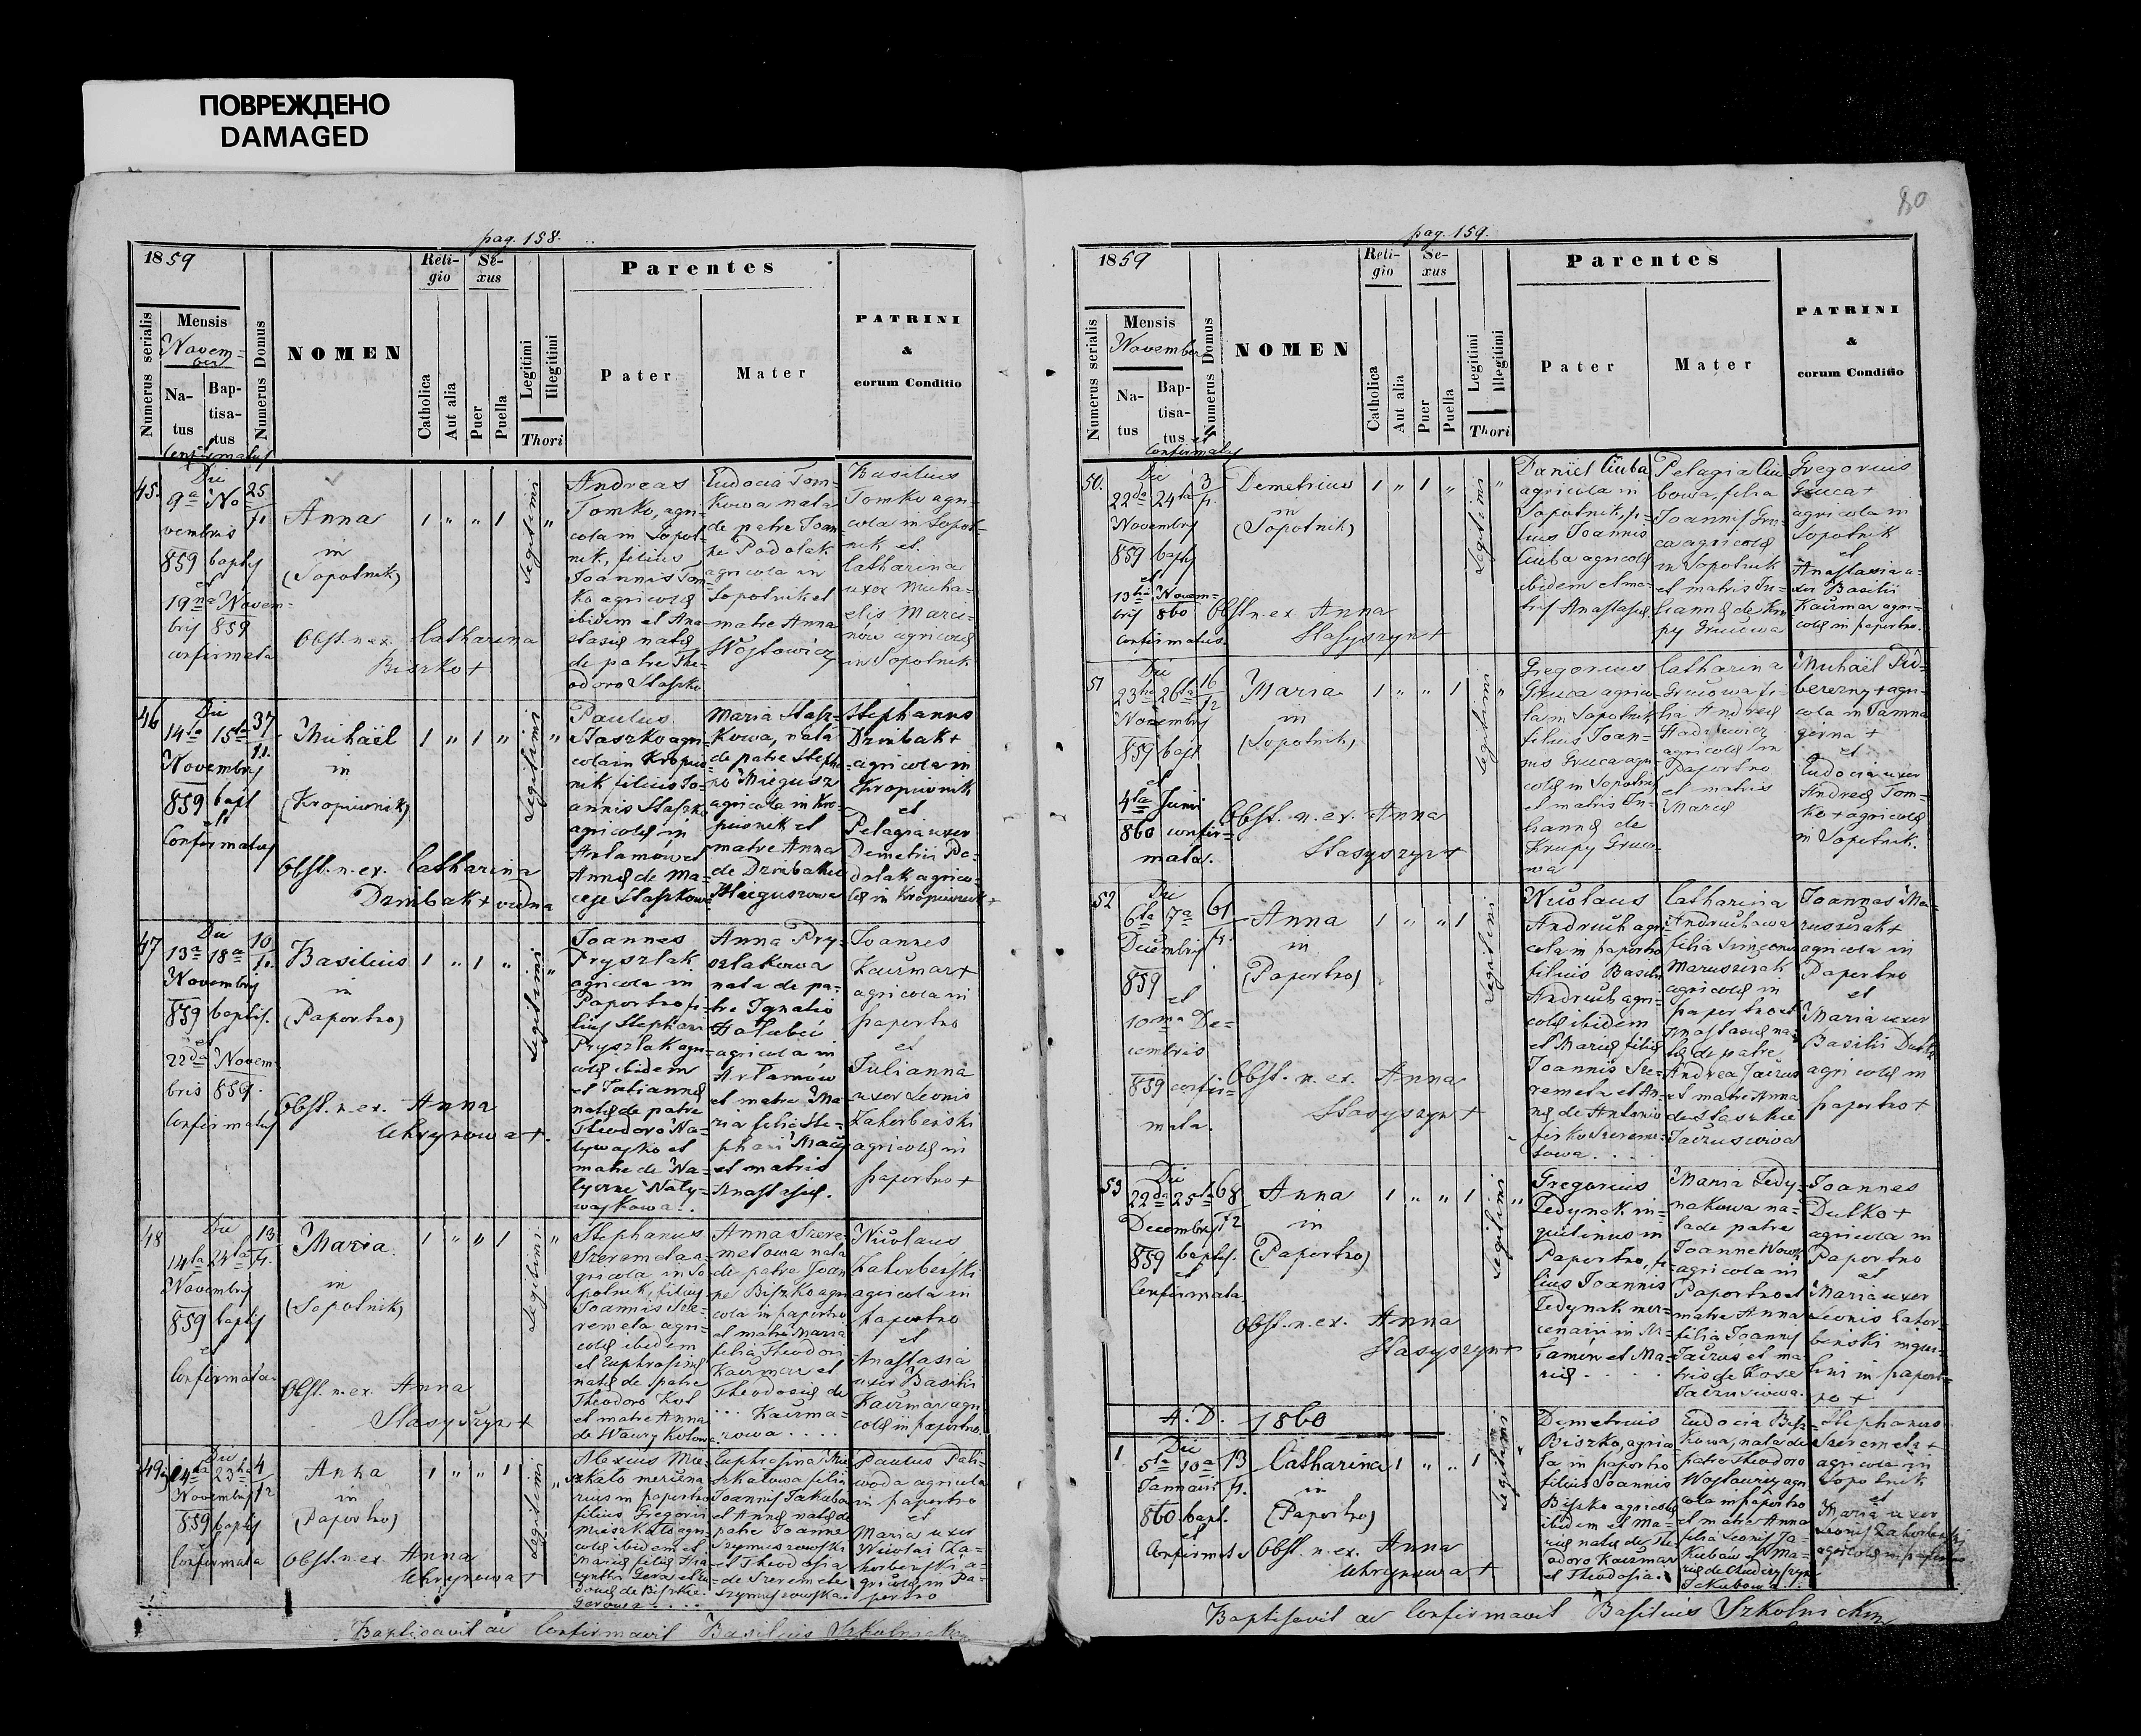 ПОВРЕЖДЕНО
DAMAGED
80
pag. 158.
1859
Reli-
gio
Se-
xus
Parentes
Numerus serialis
Mensis
Novem=
ber
Na-
tus
Bap-
tisa-
tus
et
Confirmatus
Numerus Domus
NOMEN
Catholica
Aut alia
Puer
Puella
Legitimi
Illegitimi
Thori
Pater
Mater
PATRINI
&
eorum Conditio
45.
Die
9a No
vembris
859 baptis
et
19na Novem=
bris 859
confirmata
25
Anna
in
(Sopotnik)
Obst. n. ex. Catharina
Biszko +
1 " " 1
Legitimi "
Andreas
Tomko, agri=
cola in Sopot=
nik, filius
Joannis Tom=
ko agricolæ
ibidem et Ana
stasiæ natæ
de patre The=
odoro Staszko
Eudocia Tom=
kowa nata
de patre Joan
ne Podolak
agricola in
Sopotnik et
matre Anna
Wojtowicz
Basilius
Tomko agri=
cola in Sopot=
nik et
Catharina
uxor Micha=
elis Marci=
now agricolæ
in Sopotnik
46
Die
14ta 15ta
Novembris
859 bapt
et
Confirmatus
37
Michaël
in
(Kropiwnik)
Obst. n. ex. Catharina
Dzinbak + vidna
1 " 1 "
Legitimi "
Paulus
Staszko agri=
cola in Kropiw
nik filius Jo=
annis Staszko
agricolæ in
Arłamów et
Annæ de Ma=
Maria Stasz=
kowa, nata
de patre Steph
no
agricola in Kro=
piwnik et
matre Anna
Stephanus
Dzinbak +
agricola in
Kropiwnik
et
Pelagia uxor
Demetrii Po=
dolak agrico=
læ in Kropiwnik +
47
Die
13a 18a
Novembris
859 baptis.
et
22da Novem=
bris 859.
Confirmatus
10
Basilius
in
(Paportno)
Obst. n. ex. Anna
Uhrynowa +.
1 " 1 "
Legitimi "
Joannes
Pryszlak
agricola in
Paportno fi=
lius Stephani
Pryszlak agri=
colæ ibidem
et Tatiannæ
natæ de patre
Theodoro Na=
tywajko et
matre de Na=
Naty=
wajkowa..
Anna Pry=
szlakowa
nata de pa=
tre Ignatio
agricola in
Arłamów
et matre Ma
ria filia Ste=
phani
et matris
Anastasiæ.
Joannes
Kaczmar +
agricola in
paportno
et
Julianna
uxor Leonis
Zahorbeński
agricolæ in
paportno +
48
Die
14ta 24ta
Novembris
859 baptis
et
Confirmata
13
Maria.
in
(Sopotnik)
Obst. n. ex. Anna
Stasyszyn +
1 " " 1
Legitimi "
Stephanus
Szeremeta a=
gricola in So
potnik, filius
Joannis Sze=
remeta agri=
colæ ibidem
et Euphrosinæ
natæ de patre
Theodoro Kot
et matre Anna
de Waury Kotowa
Anna Szere=
metowa nata
de patre Joan
ne Biszko agri
cola in paportno
et matre Maria
filia Theodori
Kaczmar et
Theodosiæ de
... Kaczma=
rowa ....
Nicolaus
Zahorbeński
agricola in
paportno
et
Anastasia
uxor Basilii
Kaczmar agri
colæ in paportno.
49
Die
14ta 23tia
Novembris
859 baptis
Confirmata
4
Anna
in
(Paportno)
Obst. n. ex. Anna
Uhrynowa +
1 " " 1
Legitimi "
Alexius
mercena
rius in paportno
filius Gregorii
agri=
colæ ibidem et
Mariæ filiæ
Euphrosina
filia
Joannis Jakubow
et Annæ natæ de
patre Joanne
et Theodosia
de Szeremeta
Paulus Pali=
woda agricola
in paportno
et
Maria uxor
Nicolai Za=
horbeński a=
gricolæ in Pa=
portno
Baptisavit ac Confirmavit Basilius Szkolnicki
pag. 159.
1859
Reli-
gio
Se-
xus
Parentes
Numerus serialis
Mensis
November
Na-
tus
Bap-
tisa-
tus et
Confirmatus
Numerus Domus
NOMEN
Catholica
Aut alia
Puer
Puella
Legitimi
Illegitimi
Thori
Pater
Mater
PATRINI
&
eorum Conditio
50.
Die
22da 24ta
Novembris
859 baptis
et
13tia Novem=
bris 860
Confirmatus.
3
Demetrius
in
(Sopotnik)
Obst. n. ex. Anna
Stasyszyn +
1 " 1 "
Legitimi "
Daniel Ciuba
agricola in
Sopotnik, fi=
lius Joannis
Ciuba agricolæ
ibidem et ma=
tris Anastasiæ
Pelagia Ciu
bowa, filia
Joannis Gru=
ca agricolæ
in Sopotnik
et matris Ju=
liannæ de Kru
py Grucowa
Gregorius
Gruca +
agricola in
Sopotnik
et
Anastasia u=
xor Basilii
Kaczmar agri=
colæ in paportno.
51
Die
23tia 26ta
Novembris
859 bapt
et
4ta Junii
860 confir=
mata.
16
Maria
in
(Sopotnik)
Obst. n. ex. Anna
Stasyszyn +
1 " " 1
Legitimi "
Gregorius
Gruca agrico
la in Sopotnik
filius Joan=
nis Gruca agri=
colæ in Sopotnik
et matris Ju=
liannæ de
Krupy Gruco
wa
Catharina
Grucowa fi=
lia Andreæ
agricolæ in
Paportno
et matris
Mariæ
Michaël Pid=
berezny + agri=
cola in Jamna
gorna +
et
Eudocia uxor
Andreæ Tom=
ko + agricolæ
in Sopotnik.
52
Die
6ta 7a
Decembris
859
et
10ma De=
cembris
859 confir=
mata.
61
Anna
in
(Paportno)
Obst. n. ex. Anna
Stasyszyn +
1 " " 1
Legitimi
Nicolaus
Andruch agri=
cola in paportno
filius Basilii
Andruch agri=
colæ ibidem
et Mariæ filiæ
Joannis Sze=
remeta et An=
næ de Antonio
Catharina
Andruchowa
filia Simeonis
Marusczak
agricolæ in
paportno et
Anastasiæ na=
tæ de patre
Andrea
et matre Anna
de Staszkie
Joannes Ma=
rusczak +
agricola in
Paportno
et
Maria uxor
Basilii Dutko
agricolæ in
paportno +
53
Die
22da 25ta
Decembris
859 baptis.
et
Confirmata.
68
Anna
in
(Paportno)
Obst. n. ex. Anna
Stasyszyn +
1 " " 1
Legitimi "
Gregorius
Fedynak in=
quilinus in
Paportno, fi
lius Joannis
Fedynak mer=
cenarii in Ar=
łamów et Ma=
riæ ....
Maria Fedy=
nakowa na=
ta de patre
Joanne Nowak
agricola in
Paportno et
matre Anna
filia Joannis
et ma
tris de Koza
Joannes
Dutko +
agricola in
Paportno
et
Maria uxor
Leonis Zahor=
beński inqui=
lini in paport=
no +
A. D. 1860
1
Die
5ta 10a
Januarii
860 bapt.
et
Confirmata
13
Catharina
in
(Paportno)
Obst. n. ex. Anna
Uhrynowa +
1 " " 1
Legitimi "
Demetrius
Biszko, agrico=
la in paportno
filius Joannis
Biszko agricolæ
ibidem et Ma=
riæ natæ de The
odoro Kaczmar
et Theodosia.
Eudocia Bisz=
kowa, nata de
patre Theodoro
agri
cola in paportno
et matre Anna
filia Leonis Ja=
kubów et Ma=
riæ de
Jakubowa
Stephanus
Szeremeta +
agricola in
Sopotnik
et
Maria uxor
Leonis Zahorbeński
agricolæ in paportno
Baptisavit ac Confirmavit Basilius Szkolnicki